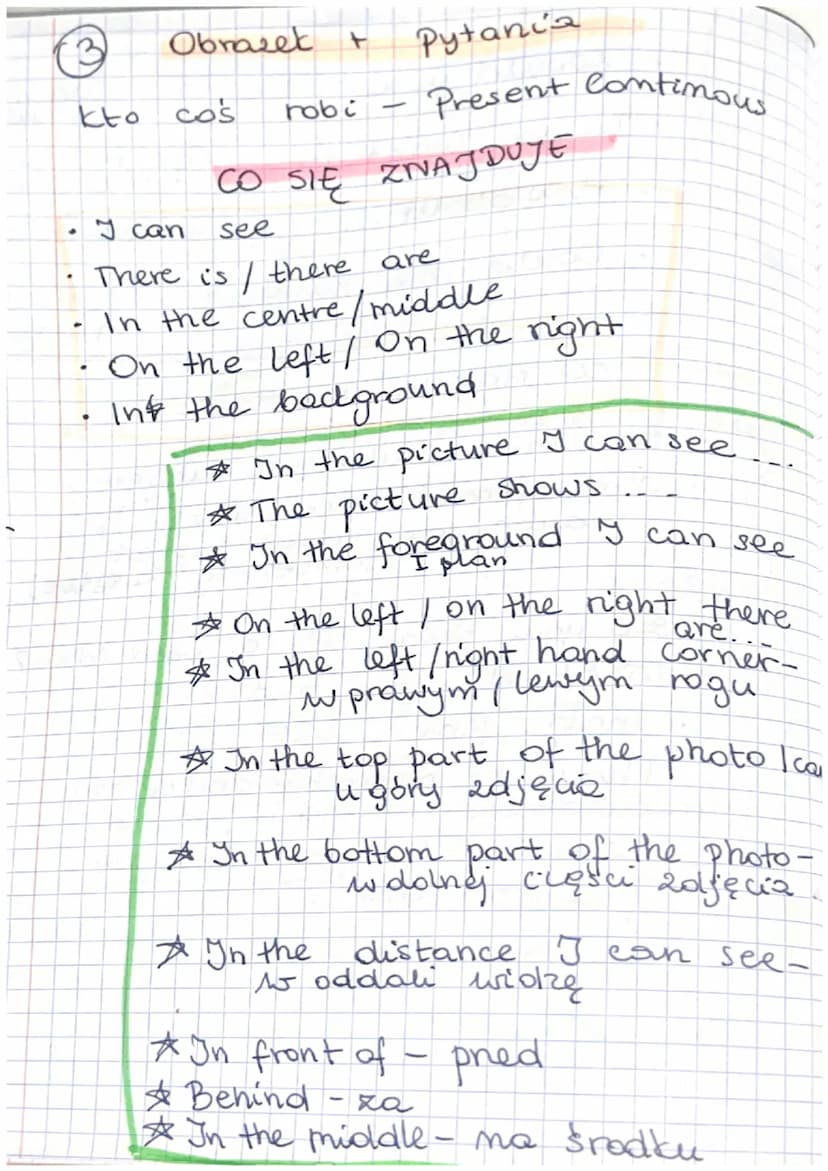 3 Obrazek + Pytania
Kto coś robi - Present Continous
CO SIĘ ZNAJDUJE
• I can see
• There is / there are
• In the centre/middle
• On the left / On the right
• In the background
☆ In the picture I can see ...
☆ The picture shows ....
☆ In the foreground I can see
I plan
☆ On the left / on the right there
are...
☆ In the left/right hand corner-
w prawym / lewym rogu
☆ In the top part of the photo I ca
u góry zdjęcia
☆ In the bottom part of the photo-
w dolnej części zdjęcia.
☆ In the distance I can see-
w oddali widzę
☆ In front of - przed
☆ Behind - za
☆ In the middle - na środku